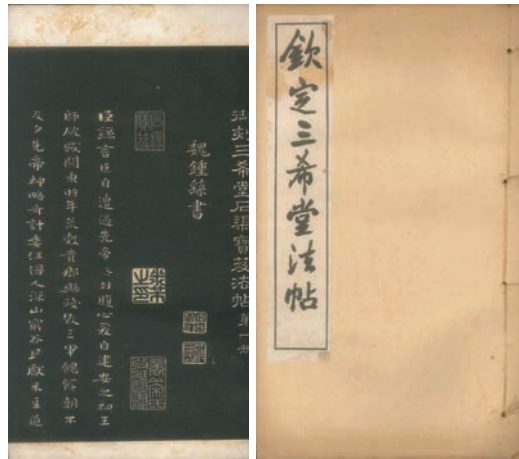 欽定三希堂法帖
御刻三希堂石渠寶笈法帖第一冊
魏鍾繇書
臣繇言臣自遭遇先帝忝列腹心爰自建安之初王
師破賊關東時年荒穀貴郡縣殘毀三軍餽饟朝不
及夕先帝神略奇計委任得人深山窮谷民獻米豆道